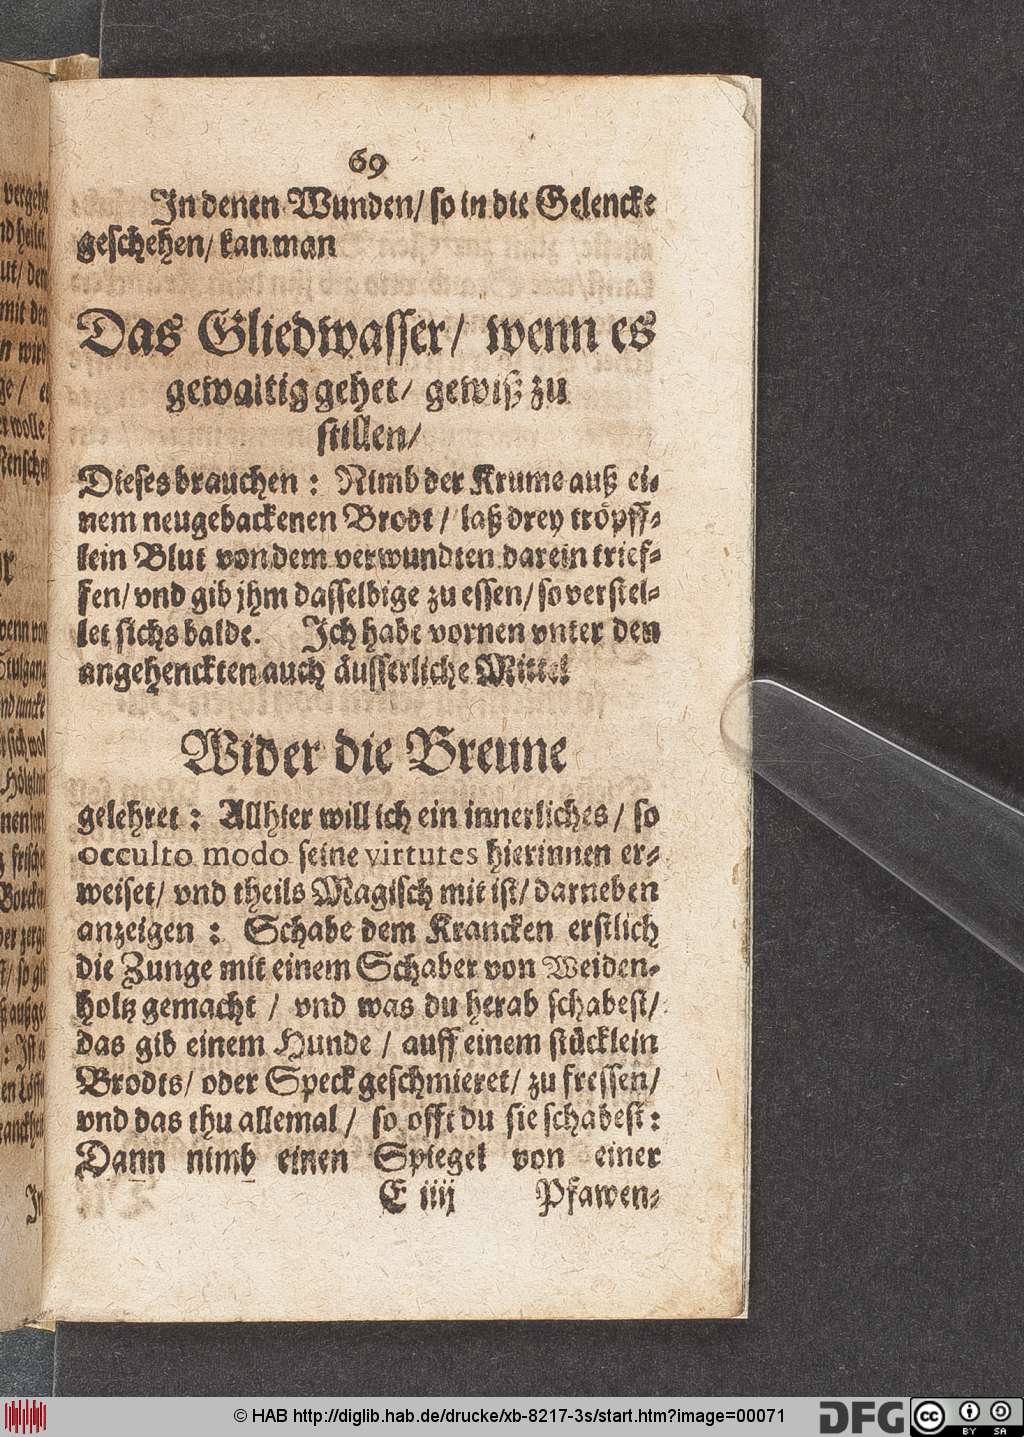 69
In denen Wunden/ so in die Gelencke
geschehen/ kan man
Das Gliedwasser/ wenn es
gewaltig gehet/ gewiß zu
stillen/
Dieses brauchen : Nimb der Krume auß ei-
nem neugebackenen Brodt / laß drey tröpff-
lein Blut von dem verwundten darein trief-
fen/ vnd gib jhm dasselbige zu essen/ so verstel-
let sichs balde. Ich habe vornen vnter den
angehenckten auch äusserliche Mittel
Wider die Breune
gelehret : Allhier will ich ein innerliches / so
occulto modo seine virtutes hierinnen er-
weiset/ vnd theils Magisch mit ist/ darneben
anzeigen : Schabe dem Krancken erstlich
die Zunge mit einem Schaber von Weiden-
holtz gemacht / vnd was du herab schabest/
das gib einem Hunde / auff einem stücklein
Brodts/ oder Speck geschmieret/ zu fressen/
vnd das thu allemal / so offt du sie schabest :
Dann nimb einen Spiegel von einer
E iiij Pfawen-
© HAB http://diglib.hab.de/drucke/xb-8217-3s/start.htm?image=00071
DFG
cc BY SA